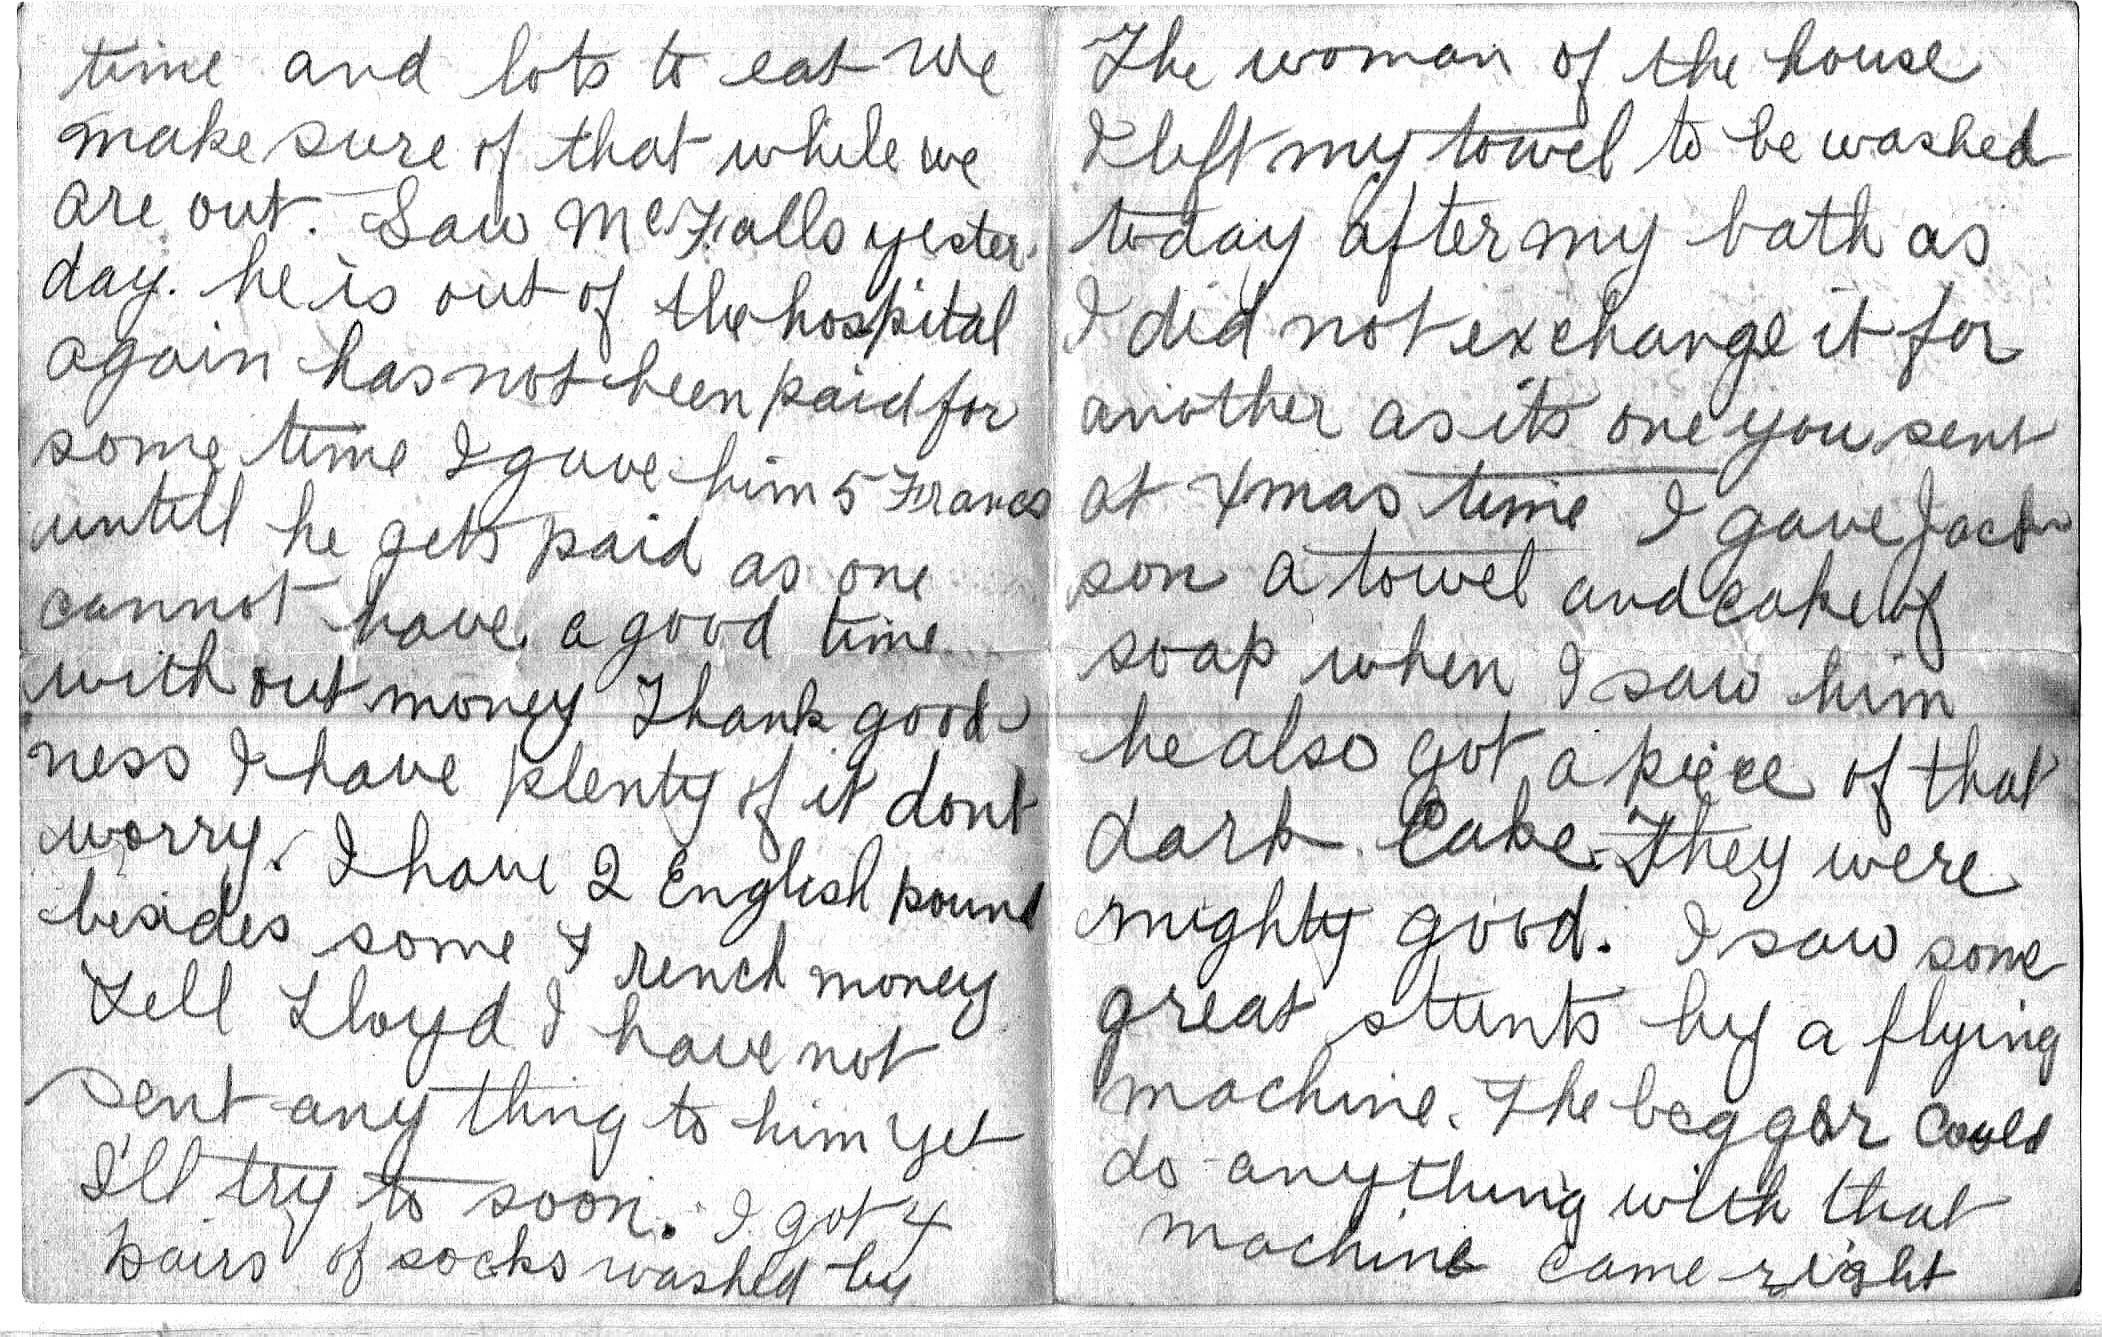 time and lots to eat We
make sure of that while we
are out. Saw McFalls yester
day. he is out of the hospital
again has not been paid for
some time I gave him 5 Francs
untill he gets paid as one
cannot have a good time
with out money Thank good
ness I have plenty of it dont
worry. I have 2 English pound
besides some French money
Tell Lloyd I have not
sent any thing to him yet
I'll try to soon. I got 4
pairs of socks washed by
The woman of the house
I left my towel to be washed
today after my bath as
I did not exchange it for
another as its one you sent
at Xmas time I gave Jack
son a towel and cake of
soap when I saw him
he also got a piece of that
dark Cake They were
mighty good. I saw some
great stunts by a flying
machine. The beggar could
do anything with that
machine came right